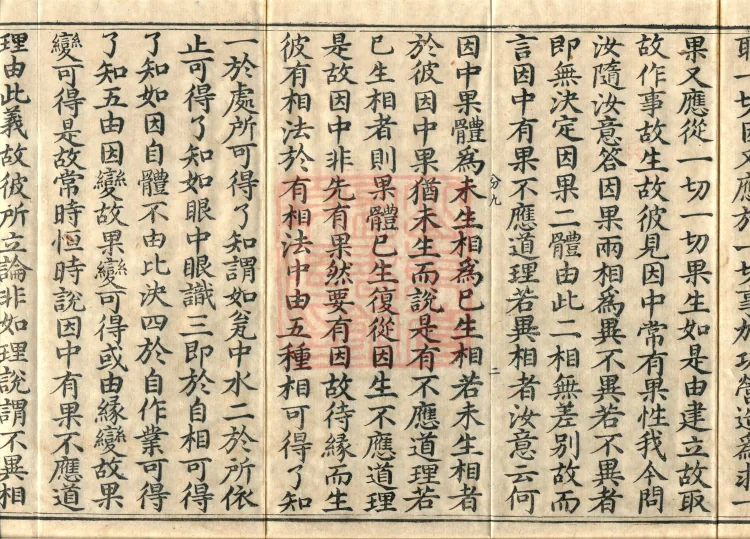 取一切因又應於一切事加功營造為求一
果又應從一切一切果生如是由建立故取
故作事故生故彼見因中常有果性我今問
汝隨汝意答因果兩相為異不異若不異者
即無決定因果二體由此二相無差別故而
言因中有果不應道理若異相者汝意云何
分九
二
因中果體為未生相為已生相若未生相者
於彼因中果猶未生而說是有不應道理若
已生相者則果體已生復從因生不應道理
是故因中非先有果然要有因故待緣而生
彼有相法於有相法中由五種相可得了知
一於處所可得了知謂如瓮中水二於所依
止可得了知如眼中眼識三即於自相可得
了知如因自體不由比決四於自作業可得
了知五由因變故果變可得或由緣變故果
變可得是故常時恒時說因中有果不應道
理由此義故彼所立論非如理說謂不異相